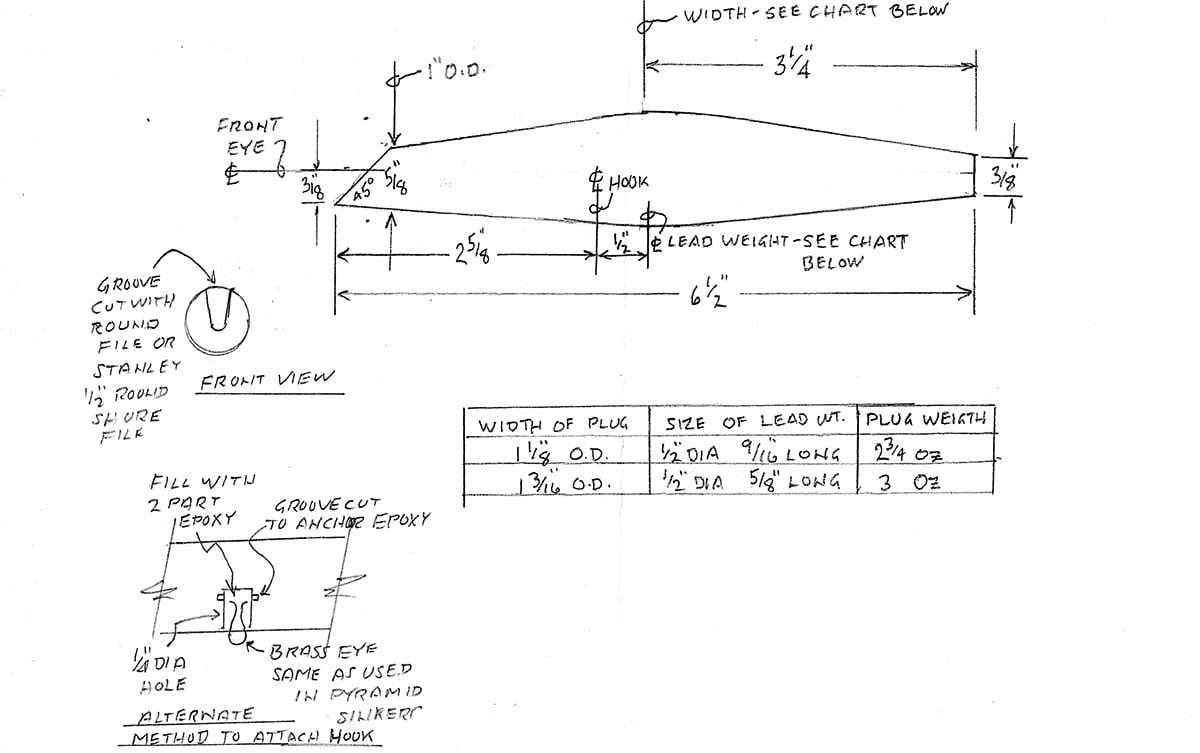 WIDTH-SEE CHART BELOW
3 1/4"
1" O.D.
FRONT
EYE
℄
3/8"
45°
5/8"
℄ HOOK
3/8"
2 5/8"
1/2"
℄ LEAD WEIGHT-SEE CHART
BELOW
6 1/2"
GROOVE
CUT WITH
ROUND
FILE OR
STANLEY
1/2" ROUND
SHURE
FILE
FRONT VIEW
WIDTH OF PLUG SIZE OF LEAD WT. PLUG WEIGTH
1 1/8" O.D. 1/2" DIA 9/16" LONG 2 3/4 OZ
1 3/16" O.D. 1/2" DIA 5/8" LONG 3 OZ
FILL WITH
2 PART
EPOXY
GROOVE CUT
TO ANCHOR EPOXY
1/4" DIA
HOLE
BRASS EYE
SAME AS USED
IN PYRAMID
SINKERS
ALTERNATE
METHOD TO ATTACH HOOK